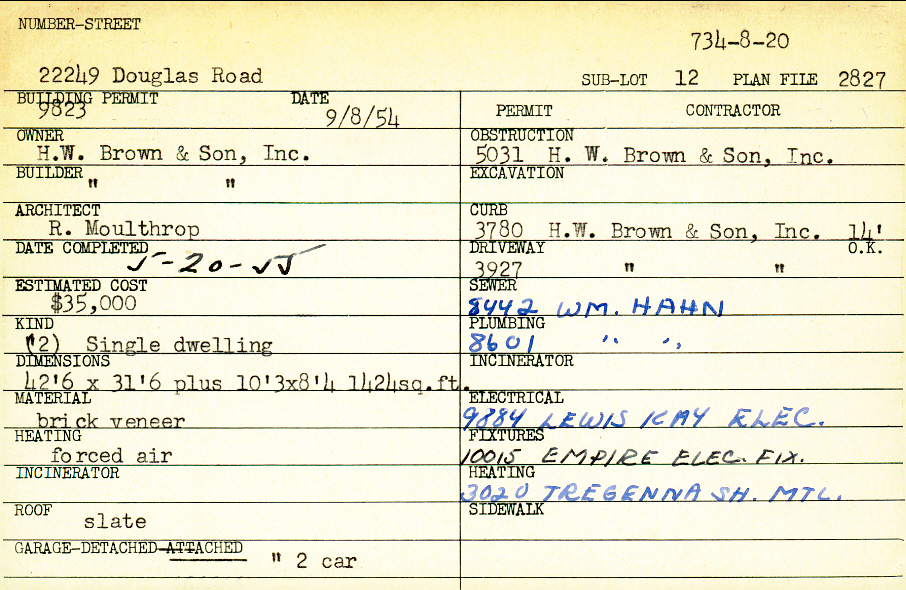 NUMBER-STREET
734-8-20
22249 Douglas Road
SUB-LOT 12 PLAN FILE 2827
BUILDING PERMIT DATE
9823 9/8/54
PERMIT CONTRACTOR
OWNER
H.W. Brown & Son, Inc.
OBSTRUCTION
5031 H. W. Brown & Son, Inc.
BUILDER
" "
EXCAVATION
ARCHITECT
R. Moulthrop
CURB
3780 H.W. Brown & Son, Inc. 14'
DATE COMPLETED
5-20-55
DRIVEWAY O.K.
3927 " "
ESTIMATED COST
$35,000
SEWER
8442 WM. HAHN
KIND
(2) Single dwelling
PLUMBING
8601 " "
DIMENSIONS
42'6 x 31'6 plus 10'3x8'4 1424sq.ft.
INCINERATOR
MATERIAL
brick veneer
ELECTRICAL
9884 LEWIS KAY ELEC.
HEATING
forced air
FIXTURES
10015 EMPIRE ELEC. FIX.
INCINERATOR
HEATING
3020 TREGENNA SH. MTL.
ROOF
slate
SIDEWALK
GARAGE-DETACHED-ATTACHED
" 2 car